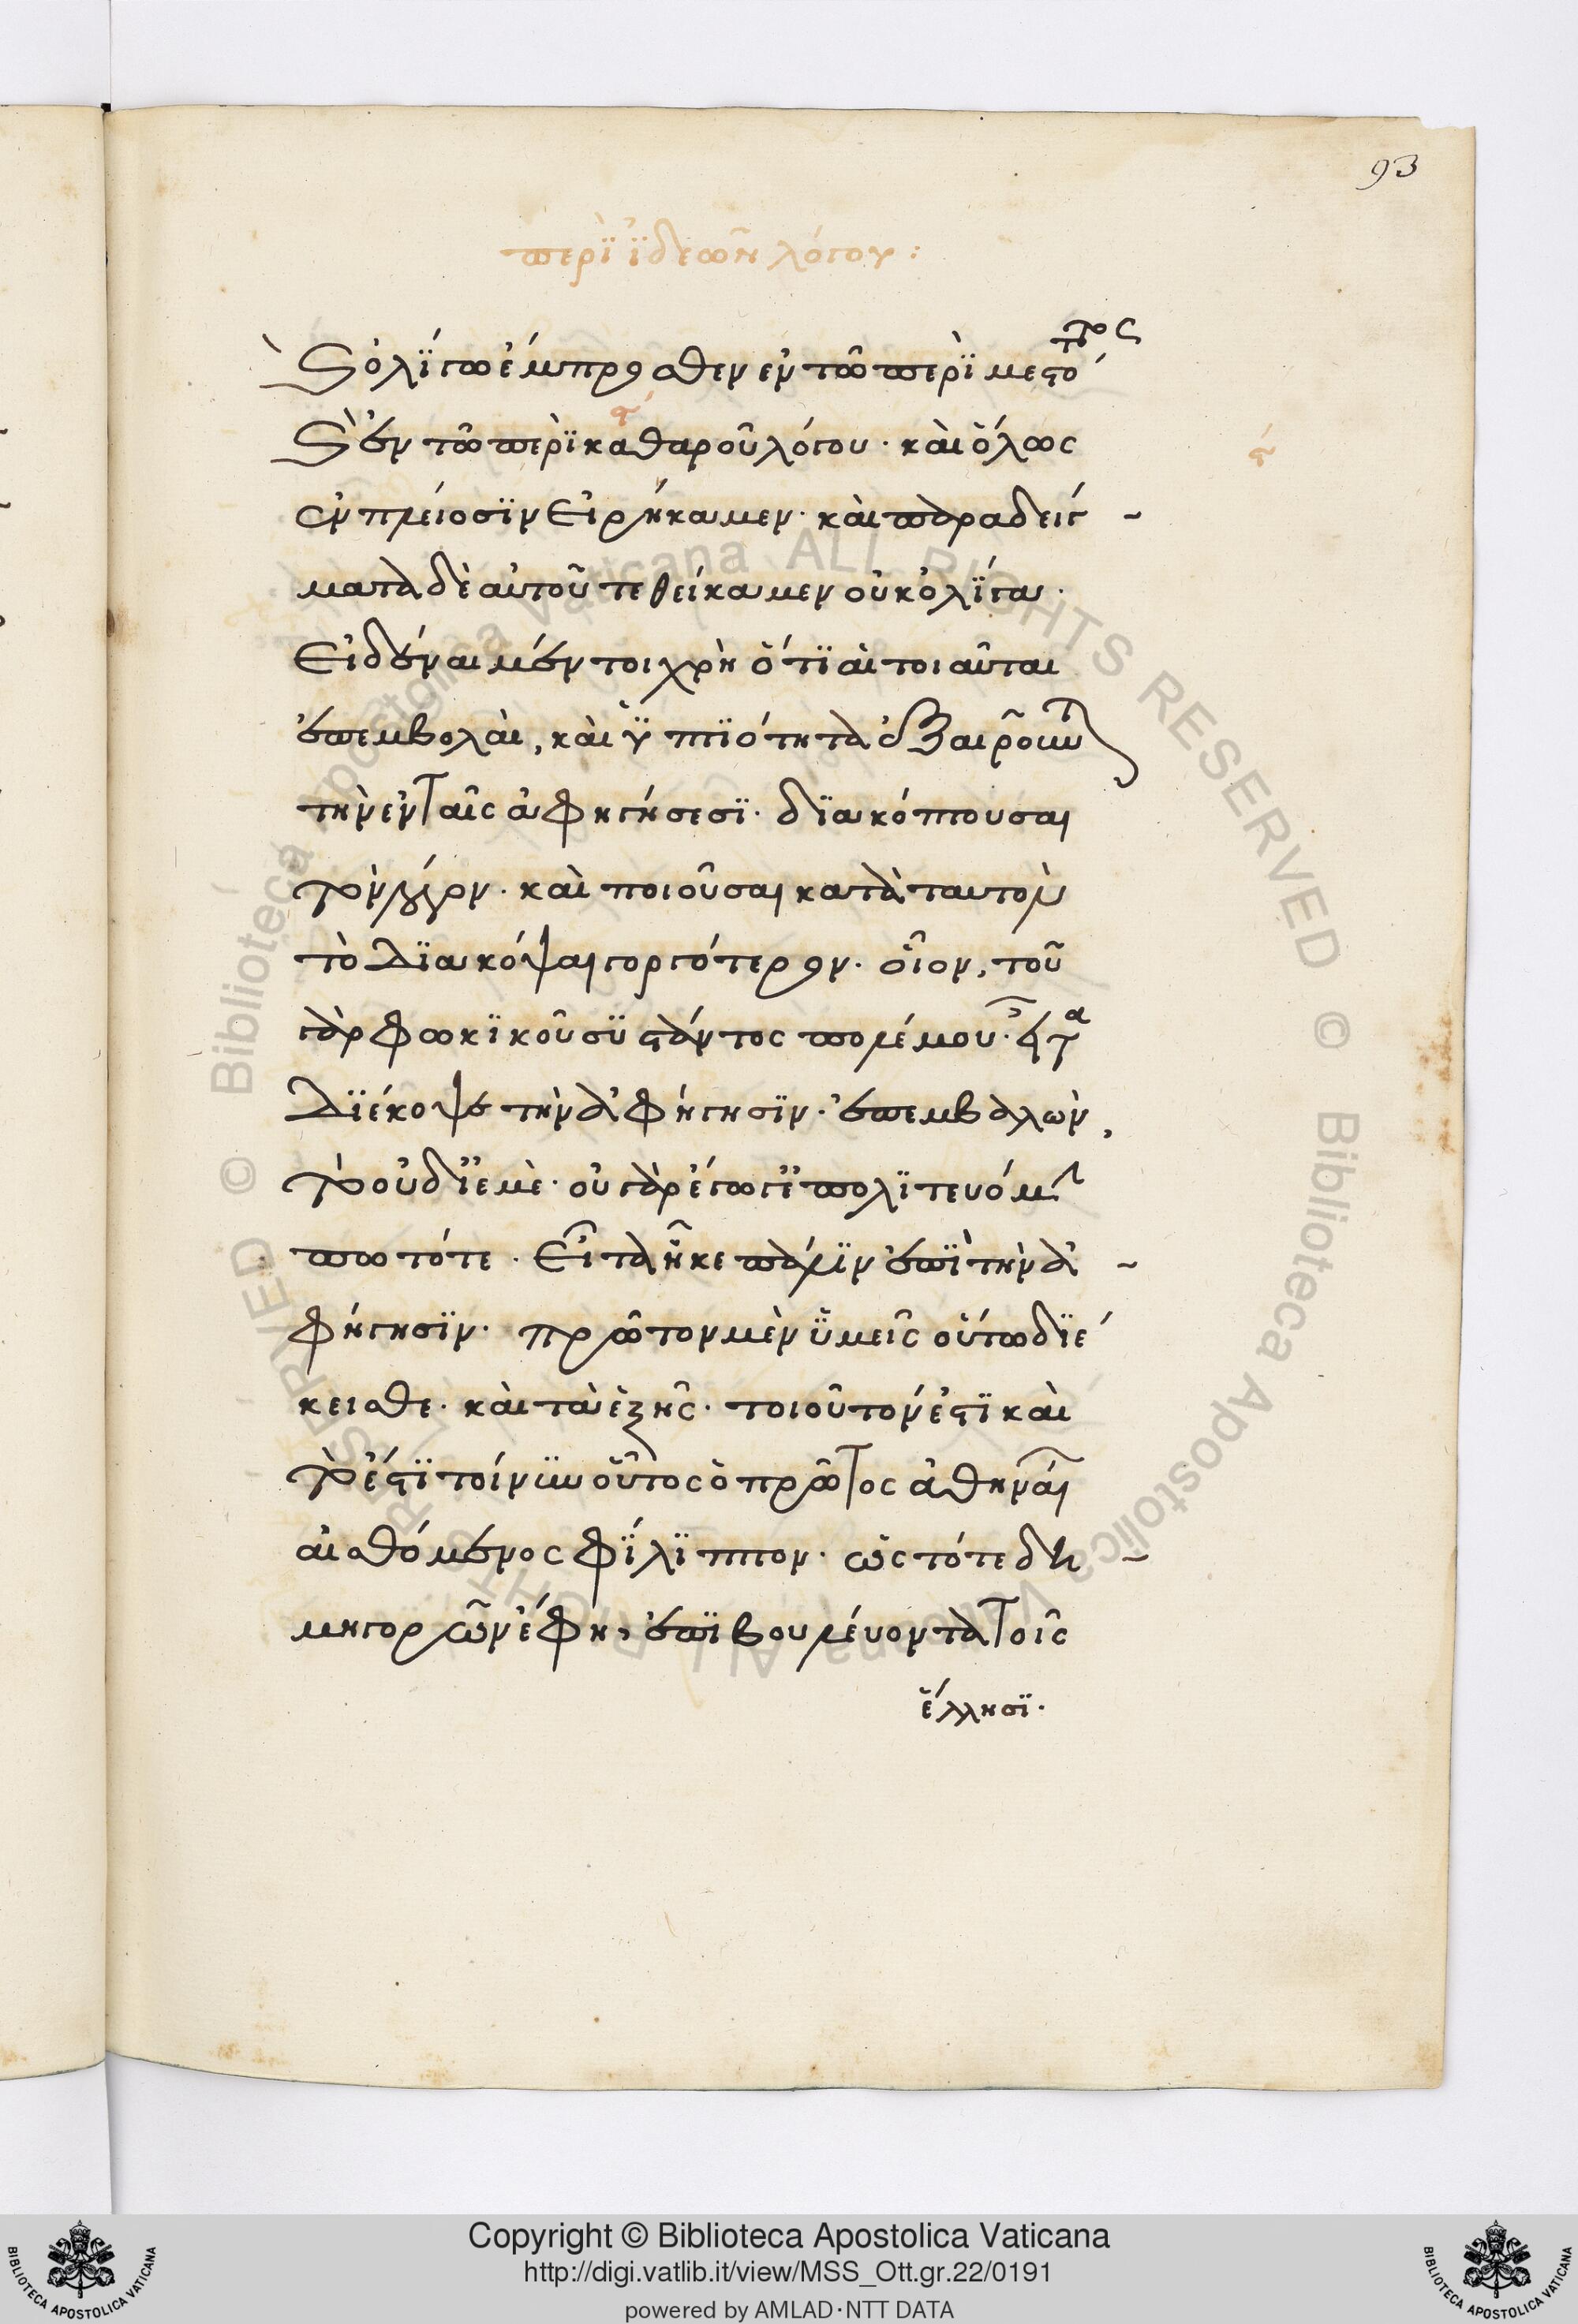 93
περὶ ἰδεῶν λόγου :
καὶ ὀλίγω ἔμπροσθεν ἐν τῶ περὶ μεστό
τητος
καὶ ἐν τῶ περὶ καθαροῦ λόγου· καὶ ὅλως
ἐν πλείοσιν εἰρήκαμεν· καὶ παραδείγ
ματα δὲ αὐτοῦ τεθείκαμεν οὐκ ὀλίγα·
Εἰδέναι μέντοι χρὴ ὅτι αἱ τοιαῦται
ἐπεμβολαὶ, καὶ ὑπτιότητα ἐξαιροῦσι
τὴν ἐν ταῖς ἀφηγήσεσι· διακόπτουσαι
τὸν λόγον· καὶ ποιοῦσαι κατὰ ταυτὸν
τὸ διακόψαι γοργότερον· οἷον, τοῦ
γὰρ φωκικοῦ συστάντος πολέμου· εἶτα
διέκοψε τὴν ἀφήγησιν· ἐπεμβαλὼν,
τὸ οὐ δι' ἐμὲ· οὐ γὰρ ἔγωγε ἐπολιτευόμην
πω τότε· εἶτα ἧκε πάλιν ἐπὶ τὴν ἀ
φήγησιν· πρῶτον μὲν ὑμεῖς οὕτω διέ
κεισθε· καὶ τὰ ἑξῆς· τοιοῦτόν ἐστι καὶ
τὸ ἔστι τοίνυν οὗτος ὁ πρῶτος ἀθηναί
αἰσθόμενος φίλιππον· ὡς τότε δη
μηγορῶν ἔφη, ἐπιβουλεύοντα τοῖς
ἕλλησι·
Copyright © Biblioteca Apostolica Vaticana
http://digi.vatlib.it/view/MSS_Ott.gr.22/0191
powered by AMLAD·NTT DATA
BIBLIOTECA APOSTOLICA VATICANA
BIBLIOTECA APOSTOLICA VATICANA